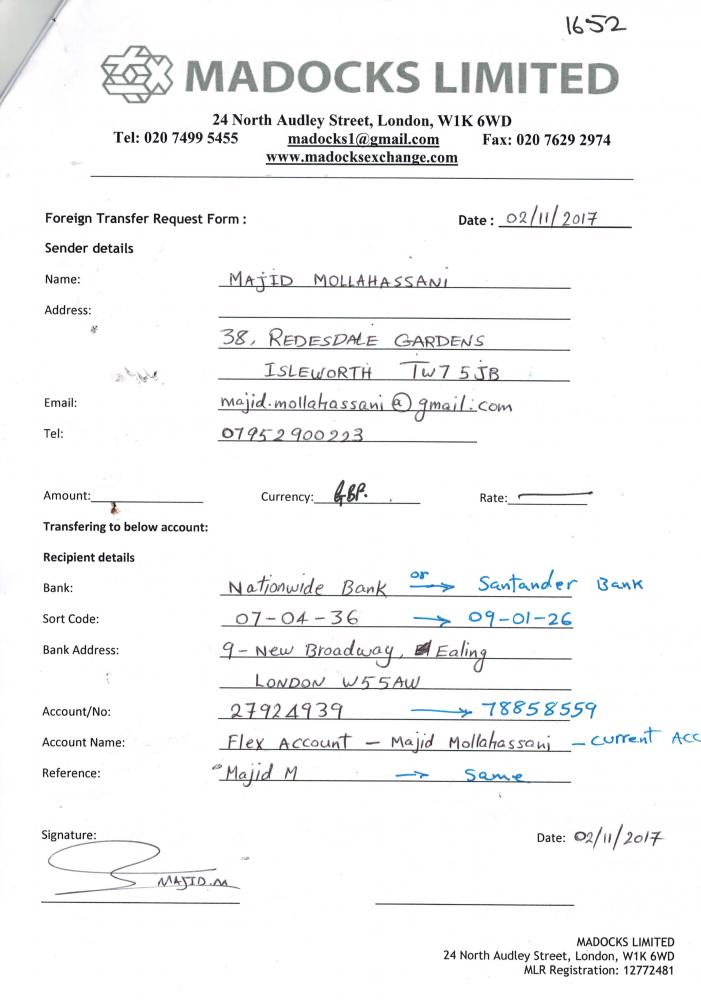 1652
MADOCKS LIMITED
24 North Audley Street, London, W1K 6WD
Tel: 020 7499 5455 madocks1@gmail.com Fax: 020 7629 2974
www.madocksexchange.com
Foreign Transfer Request Form : Date : 02/11/2017
Sender details
Name: MAJID MOLLAHASSANI
Address:
38, REDESDALE GARDENS
ISLEWORTH TW7 5JB
Email: majid.mollahassani@gmail.com
Tel: 07952900223
Amount: Currency: GBP. Rate:
Transfering to below account:
Recipient details
Bank: Nationwide Bank or → Santander Bank
Sort Code: 07-04-36 → 09-01-26
Bank Address: 9- New Broadway, Ealing
LONDON W55AW
Account/No: 27924939 → 78858559
Account Name: Flex Account - Majid Mollahassani - current Acc
Reference: Majid M → Same
Signature: Date: 02/11/2017
MAJID.M
MADOCKS LIMITED
24 North Audley Street, London, W1K 6WD
MLR Registration: 12772481